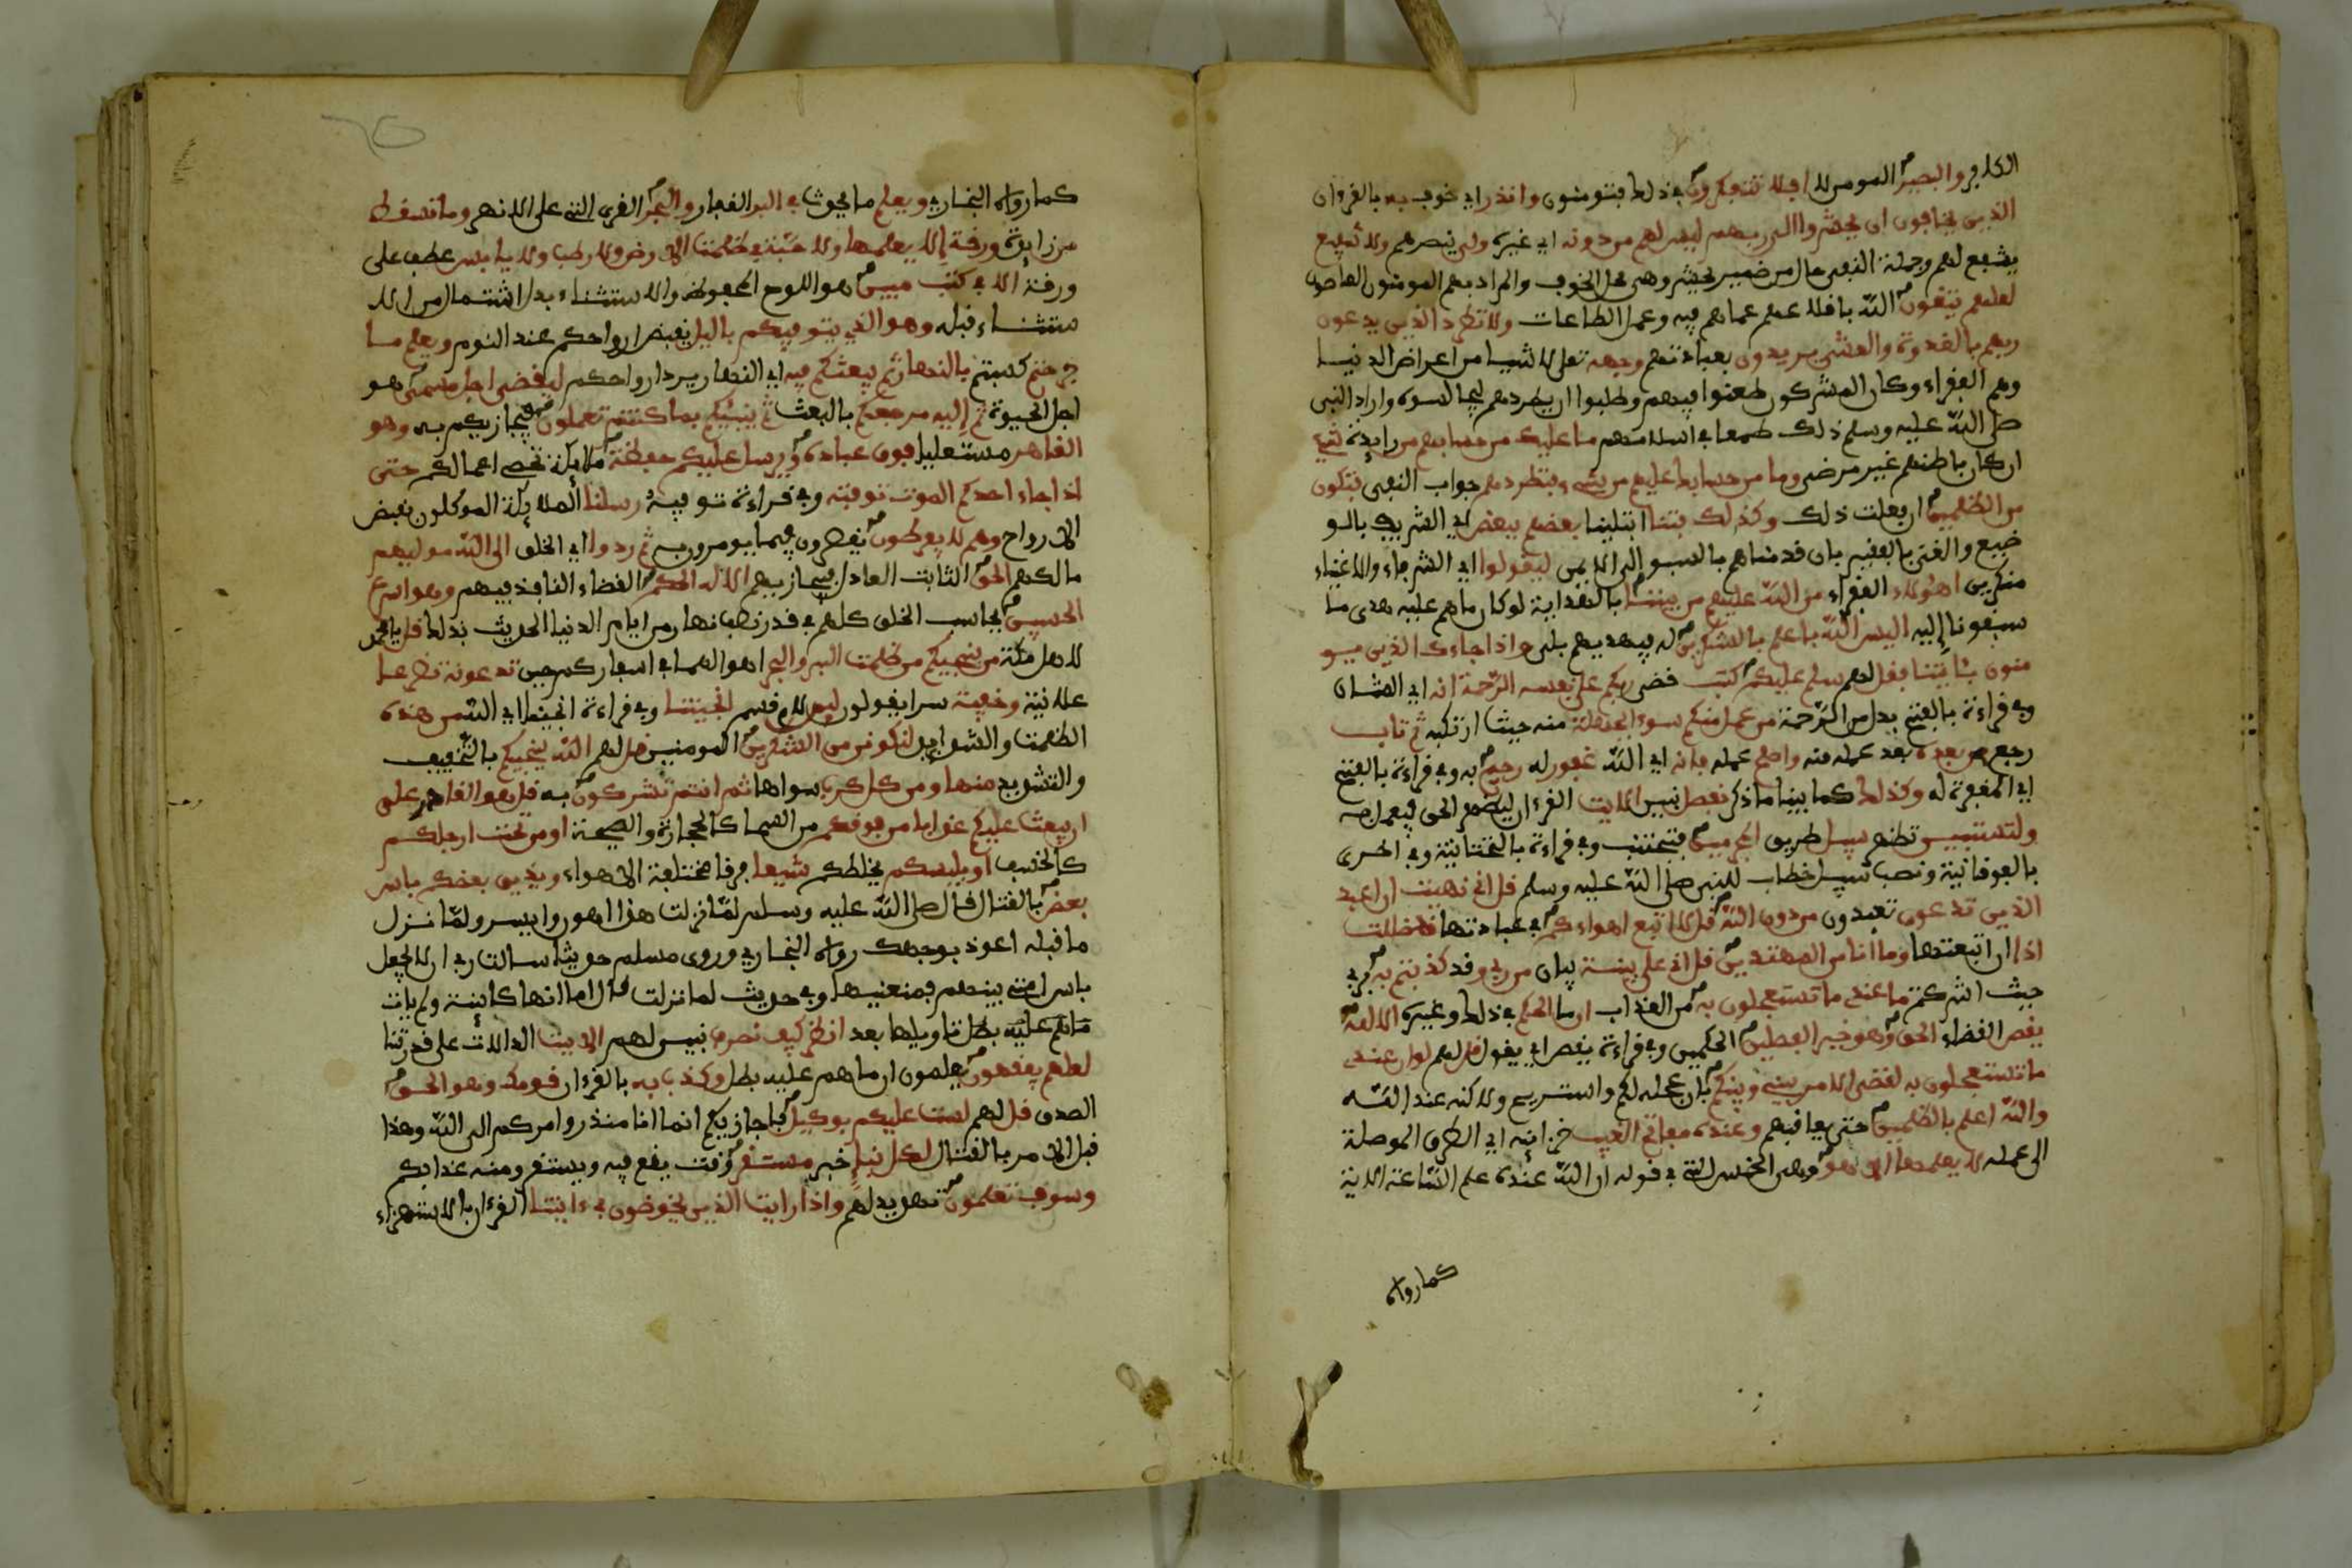 الكافر والبصير المومن لا افلا تتفكرون في ذلك فتومنون وانذر اي خوف به بالقرءان
الذين يخافون ان يحشروا الى ربهم ليس لهم من دونه اي غيره ولي ينصرهم ولا شفيع
يشفع لهم وجملة النفي حال من ضمير يحشروا وهي محل الخوف والمراد بهم المومنون العاصون
لعلهم يتقون الله باقلاعهم عما هم فيه وعمل الطاعات ولا تطرد الذين يدعون
ربهم بالغدوة والعشي يريدون بعبادتهم وجهه تعلى لا شيا من اعراض الدنيا
وهم الفقراء وكان المشركون طعنوا فيهم وطلبوا ان يطردهم ليجالسوه واراد النبي
صلى الله عليه وسلم ذلك طمعا في اسلامهم ما عليك من حسابهم من زايدة شيء
ان كان باطنهم غير مرضي وما من حسابك عليهم من شيء فتطردهم جواب النفي فتكون
من الظلمين ان فعلت ذلك وكذلك فتنا ابتلينا بعضهم ببعض اي الشريف بالو
ضيع والغني بالفقير بان قدمناهم بالسبو الى الايمن ليقولوا اي الشرفاء والاغنياء
منكرين اهؤلاء الفقراء من الله عليهم من بيننا بالهداية لو كان ما هم عليه هدى ما
سبقونا إليه اليس الله باعلم بالشكرين له فيهديهم بلى واذا جاءك الذين يو
منون بئايتنا فقل لهم سلم عليكم كتب قضى ربكم على نفسه الرحمة انه اي الشان
وفي قراءة بالفتح بدل من الرحمة من عمل منكم سوءا بجهلة منه حيث ارتكبه ثم تاب
رجع من بعده بعد عمله منه واصلح عمله فانه اي الله غفور له رحيم به وفي قراءة بالفتح
اي المغفرة له وكذلك كما بينا ما ذكر نفصل نبين الايت القرءان ليظهر الحق فيعمل به
ولتستبين تظهر سبيل طريق المجرمين فتجتنب وفي قراءة بالتحتانية وفي اخرى
بالفوقانية ونصب سبيل خطاب للنبي صلى الله عليه وسلم قل اني نهيت ان اعبد
الذين تدعون تعبدون من دون الله قل لا اتبع اهواءكم في عبادتها قد ضللت
اذا ان اتبعتها وما انا من المهتدين قل اني على بينة بيان من ربي وقد كذبتم به بربي
حيث اشركتم ما عندي ما تستعجلون به من العذاب ان ما الحكم في ذلك وغيره الا لله
يقص القضاء الحق وهو خير الفصلين الحكمين وفي قراءة يقص اي يقول قل لهم لو ان عندي
ما تستعجلون به لقضي الامر بيني وبينكم بان عجله لكم واستريح ولاكنه عند الله
والله اعلم بالظلمين متى يعاقبهم وعنده مفاتح الغيب خزائنه اي الطرق الموصلة
الى عمله لا يعلمها الا هو وهي الخمس التي في قوله ان الله عنده علم الساعة الاية
كما رواه
كما رواه البخاري ويعلم ما يحدث في البر القفار والبحر القرى التي على الانهر وما تسقط
من زايدة ورقة إلا يعلمها ولا حبة في ظلمت الارض ولا رطب ولا يابس عطف على
ورقة الا في كتب مبين هو اللوح المحفوظ والاستثناء بدل اشتمال من الا
ستثناء قبله وهو الذي يتوفيكم باليل يقبض ارواحكم عند النوم ويعلم ما
جرحتم كسبتم بالنهار ثم يبعثكم فيه اي النهار يرد ارواحكم ليقضى اجل مسمى هو
اجل الحيوة ثم إليه مرجعكم بالبعث ثم ينبئكم بما كنتم تعملون فيجازيكم به وهو
القاهر مستعليا فوق عباده ويرسل عليكم حفظة ملائكة تحصي اعمالكم حتى
اذا جاء احدكم الموت توفته وفي قراءة توفيه رسلنا الملائكة الموكلون بقبض
الارواح وهم لا يفرطون يقصرون فيما يومرون به ثم ردوا اي الخلق الى الله موليهم
مالكهم الحق الثابت العادل فيجازيهم الا له الحكم القضاء النافذ فيهم وهو اسرع
الحسبين يحاسب الخلق كلهم في قدر نصف نهار من ايام الدنيا لحديث بذلك قل يا محمد
لاهل مكة من ينجيكم من ظلمت البر والبحر اهوالهما في اسفاركم حين تدعونه تضرعا
علانية وخفية سرا يقولون لين لام قسم انجيتنا وفي قراءة انجينا اي الله من هذه
الظلمت والشدايد لنكونن من الشكرين المومنين قل لهم الله ينجيكم بالتخفيف
والتشديد منها ومن كل كرب سواها ثم انتم تشركون به قل هو القادر على
ان يبعث عليكم عذابا من فوقكم من السماء كالحجارة والصيحة او من تحت ارجلكم
كالخسف او يلبسكم يخلطكم شيعا فرقا مختلفة الاهواء ويذيق بعضكم باس
بعض بالقتال قال صلى الله عليه وسلم لما نزلت هذا اهون وايسر ولما نزل
ما قبله اعوذ بوجهك رواه البخاري وروى مسلم حديث سالت ربي ان لا يجعل
باس امتي بينهم فمنعنيها وفي حديث لما نزلت قال اما انها كاينة ولم يات
تاويلها بعد انظر كيف نصرف نبين لهم الايت الدالات على قدرتنا
لعلهم يفقهون يعلمون ان ما هم عليه بطل وكذب به بالقرءان قومك وهو الحق
الصدق قل لهم لست عليكم بوكيل فاجازيكم انما انا منذر وامركم الى الله وهذا
قبل الامر بالقتال لكل نبإ خبر مستقر وقت يقع فيه ويستقر ومنه عذابكم
وسوف تعلمون تهديد لهم واذا رايت الذين يخوضون في ءايتنا القرءان بالاستهزاء